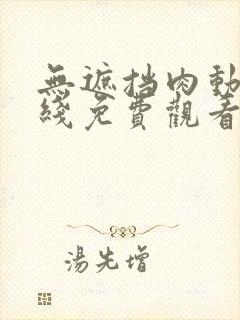 無遮挡肉動
綫免費觀看
湯先增